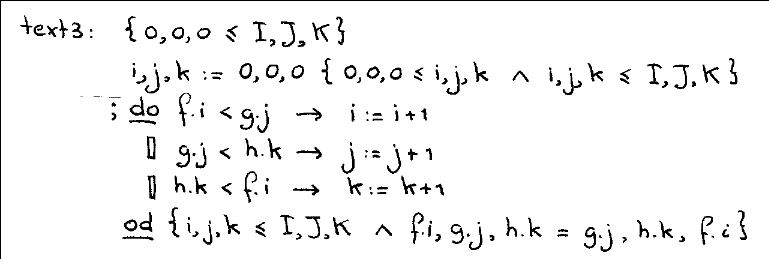 text3: {0,0,0 ≤ I,J,K}
i,j,k := 0,0,0 {0,0,0 ≤ i,j,k ∧ i,j,k ≤ I,J,K}
; do f.i < g.j → i := i+1
▯ g.j < h.k → j := j+1
▯ h.k < f.i → k := k+1
od {i,j,k ≤ I,J,K ∧ f.i, g.j, h.k = g.j, h.k, f.i}